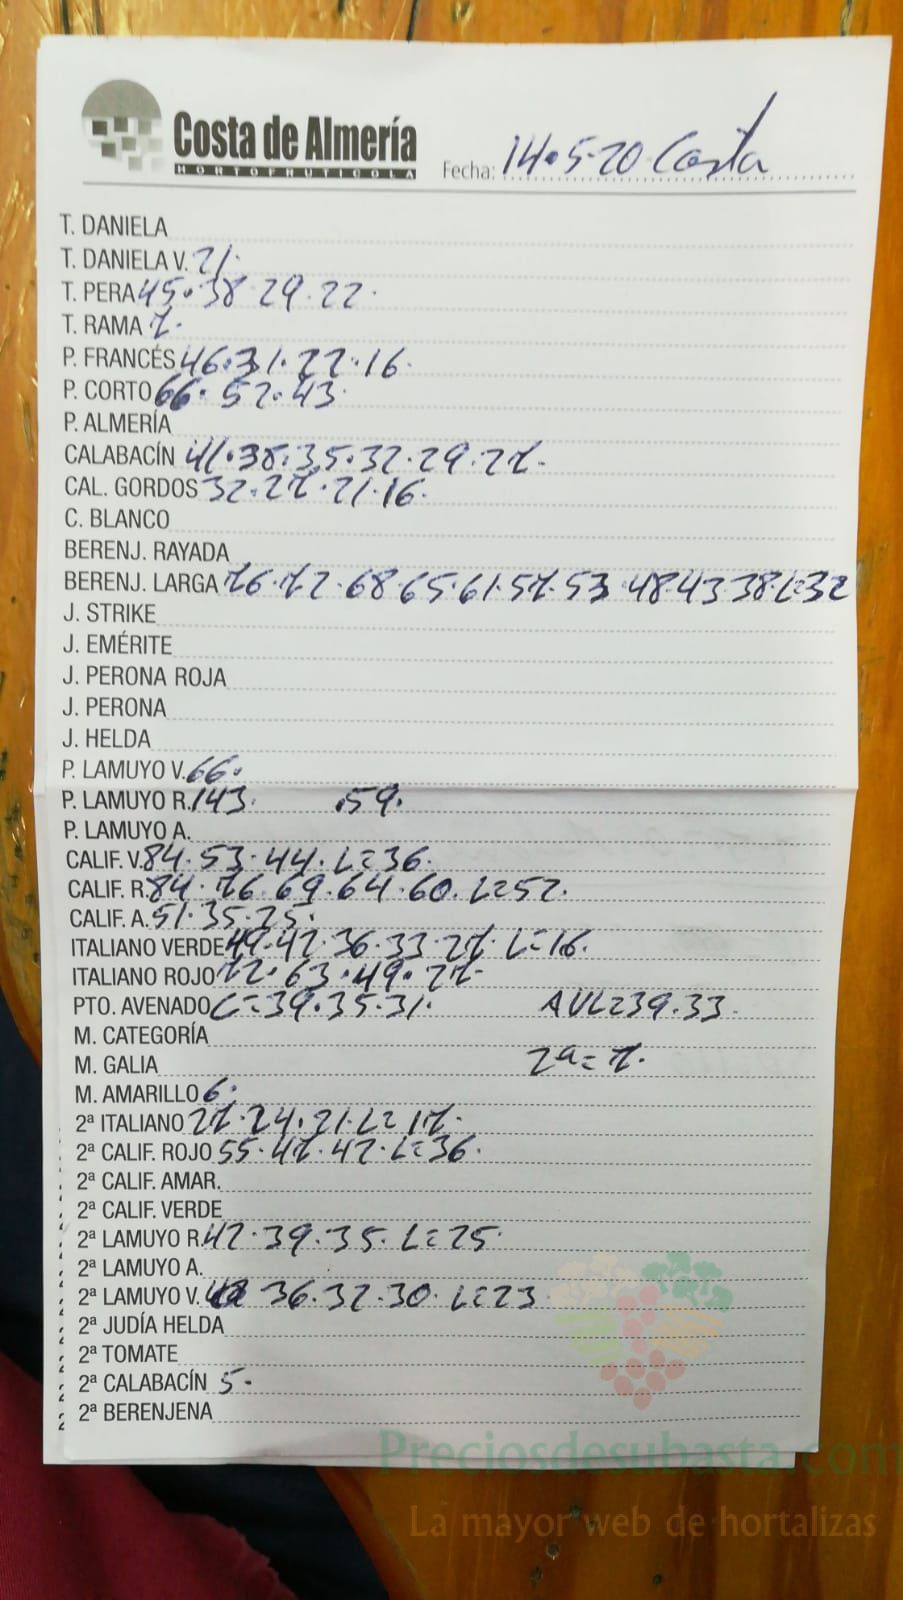 Costa de Almería
HORTOFRUTICOLA
Fecha: 14.5-20 Costa
T. DANIELA
T. DANIELA V. 21.
T. PERA 45.38.29.22.
T. RAMA 7.
P. FRANCÉS 46.31.22.16.
P. CORTO 66.52.43.
P. ALMERÍA
CALABACÍN 41.38.35.32.29.27.
CAL. GORDOS 32.27.21.16.
C. BLANCO
BERENJ. RAYADA
BERENJ. LARGA 76.72.68.65.61.57.53.48.43.38.L=32
J. STRIKE
J. EMÉRITE
J. PERONA ROJA
J. PERONA
J. HELDA
P. LAMUYO V. 66.
P. LAMUYO R. 143. .59.
P. LAMUYO A.
CALIF. V. 84.53.44.L=36.
CALIF. R. 84.76.69.64.60.L=52.
CALIF. A. 51.35.25.
ITALIANO VERDE 49.42.36.33.27.L=16.
ITALIANO ROJO 72.63.49.27.
PTO. AVENADO C=39.35.31. AVL=39.33.
M. CATEGORÍA
M. GALIA 2ª=7.
M. AMARILLO 6.
2ª ITALIANO 27.24.21.L=17.
2ª CALIF. ROJO 55.47.42.L=36.
2ª CALIF. AMAR.
2ª CALIF. VERDE
2ª LAMUYO R. 42.39.35.L=25.
2ª LAMUYO A.
2ª LAMUYO V. 36.32.30.L=23
2ª JUDÍA HELDA
2ª TOMATE
2ª CALABACÍN 5.
2ª BERENJENA
Preciosdesubasta.com
La mayor web de hortalizas